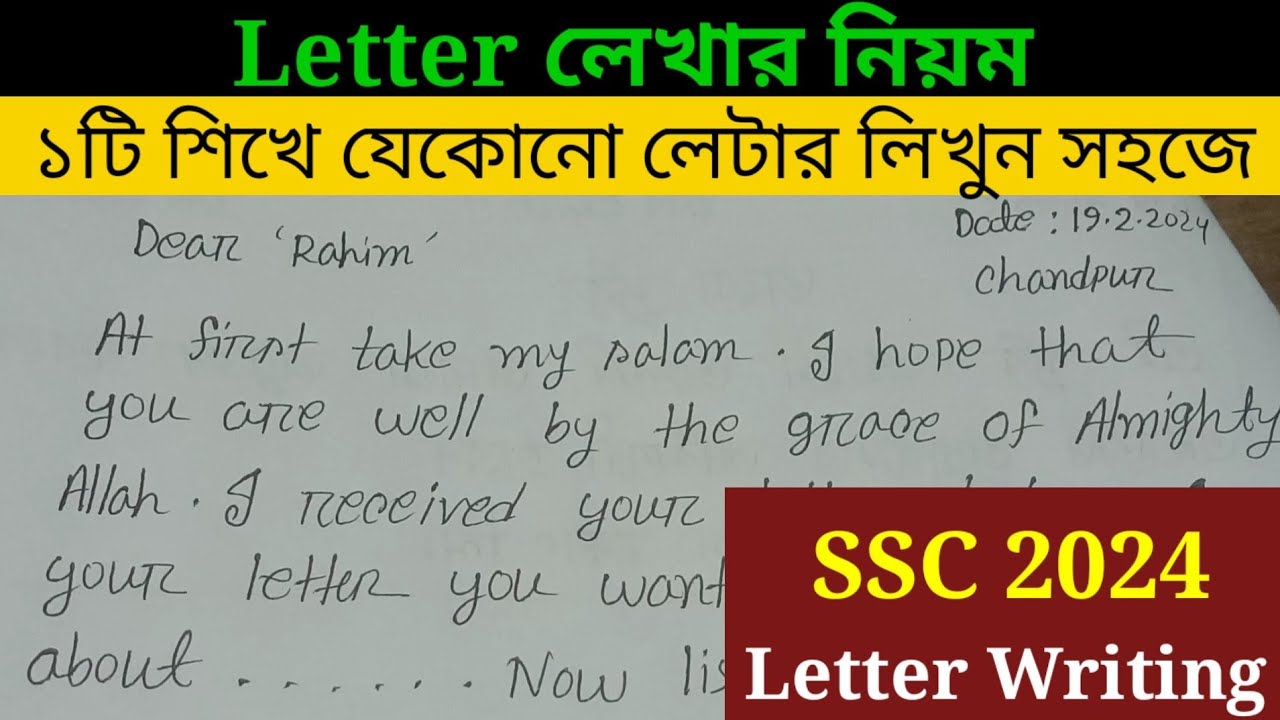 Letter লেখার নিয়ম
১টি শিখে যেকোনো লেটার লিখুন সহজে
Dear 'Rahim'
Date : 19.2.2024
Chandpur
At first take my salam. I hope that
you are well by the grace of Almighty
Allah. I received your
your letter you want
about ...... Now
SSC 2024
Letter Writing